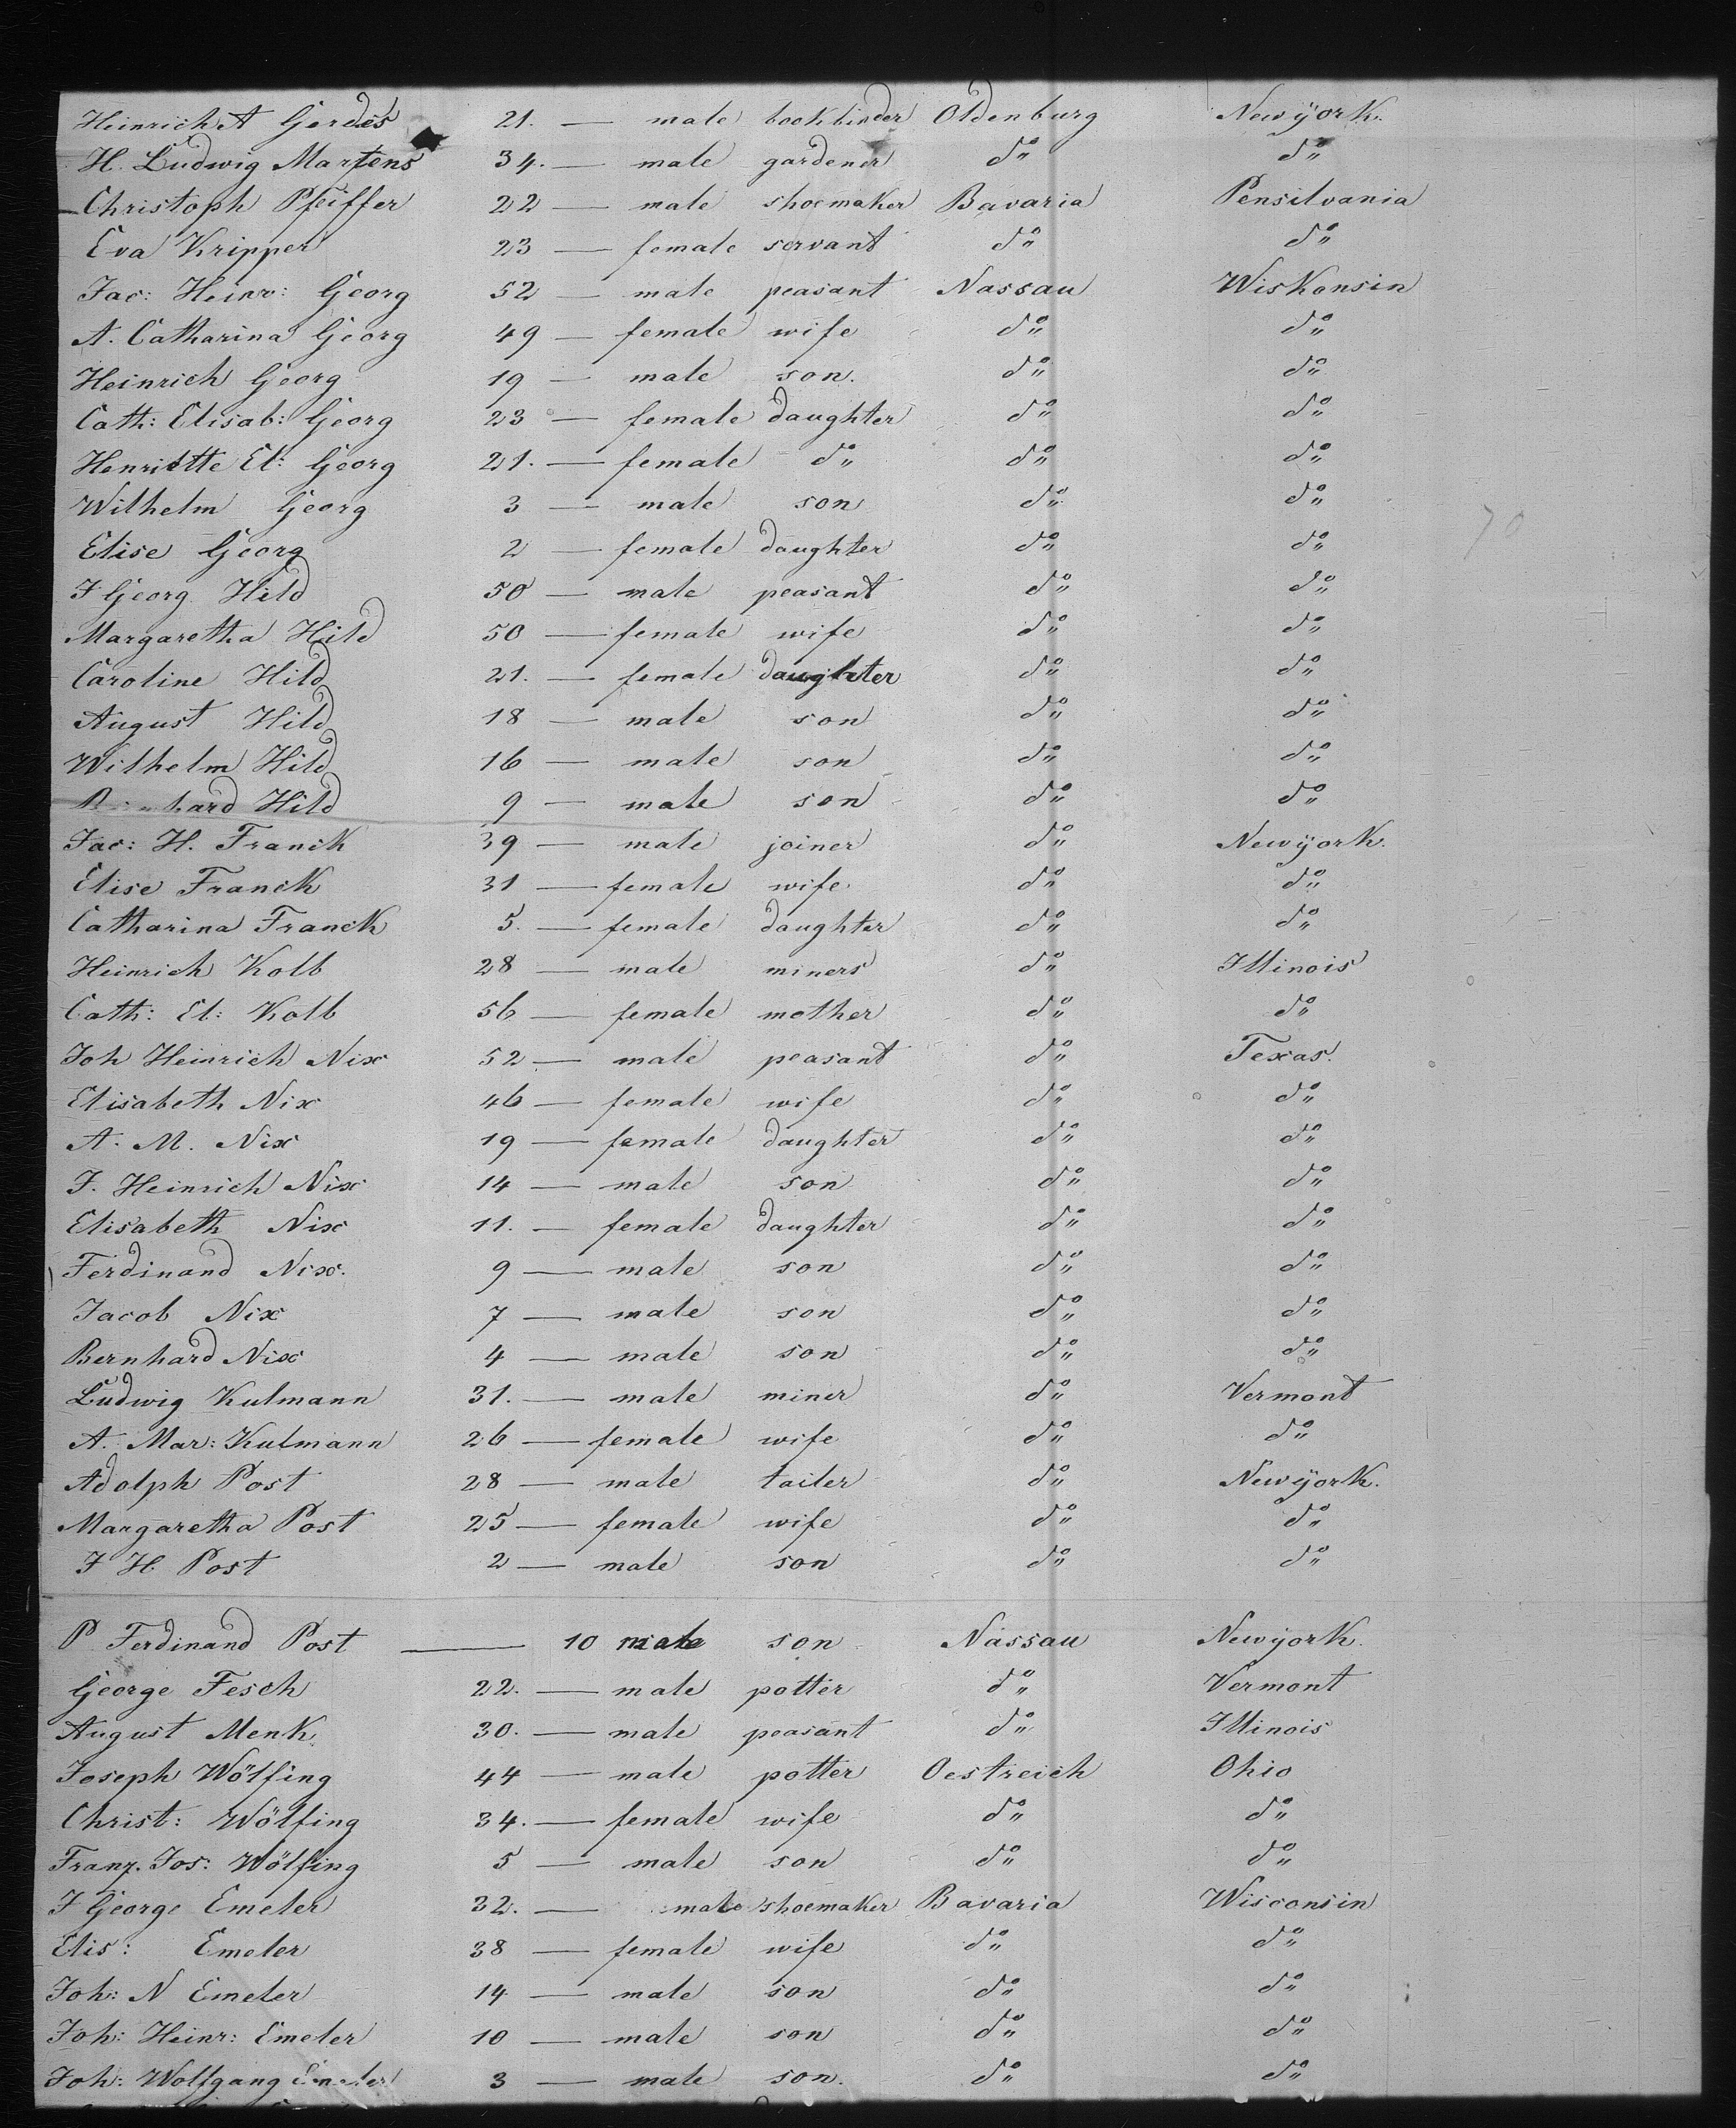 Heinrich A Gerdes 21. — male bookbinder Oldenburg Newÿork.
H. Ludwig Martens 34. — male gardener do Do
Christoph Pfeiffer 22 — male shoemaker Bavaria Pensilvania
Eva Kripper 23 — female servant do do
Jac: Heinr: Georg 52 — male peasant Nassau Wiskonsin
A. Catharina Georg 49 — female wife do do
Heinrich Georg 19 — male son. do do
Cath: Elisab: Georg 23 — female daughter do do
Henriette El: Georg 21. — female do do do
Wilhelm Georg 3 — male son do do
Elise Georg 2 — female daughter do do
J Georg Hild 50 — male peasant do do
Margaretha Hild 50 — female wife do do
Caroline Hild 21. — female daughter do do
August Hild 18 — male son do do
Wilhelm Hild 16 — male son do do
Hild 9 — male son do do
Jac: H. Franck 39 — male joiner do Newÿork.
Elise Franck 31 — female wife do do
Catharina Franck 5. — female daughter do do
Heinrich Kolb 28 — male miners do Illinois
Cath: El: Kolb 56 — female mother do do
Joh Heinrich Nix 52 — male peasant do Texas.
Elisabeth Nix 46 — female wife do do
A. M. Nix 19 — female daughter do do
J. Heinrich Nix 14 — male son do do
Elisabeth Nix 11. — female daughter do do
Ferdinand Nix. 9 — male son do do
Jacob Nix 7 — male son do do
Bernhard Nix 4 — male son do do
Ludwig Kulmann 31. — male miner do Vermont
A. Mar: Kulmann 26 — female wife do do
Adolph Post 28 — male tailer do Newÿork.
Margaretha Post 25 — female wife do do
J H. Post 2 — male son do do
P Ferdinand Post — 10 male son Nassau Newÿork.
George Fesch 22. — male potter do Vermont
August Menk 30. — male peasant do Illinois
Joseph Wölfing 44 — male potter Oestreich Ohio
Christ: Wölfing 34. — female wife do do
Franz. Jos: Wölfing 5 — male son do do
J George Emeler 32. — male shoemaker Bavaria Wisconsin
Elis: Emeler 38 — female wife do do
Joh: N Emeler 14 — male son do do
Joh: Heinr: Emeler 10 — male son do do
Joh: Wolfgang Emeler 3 — male son. do do
70